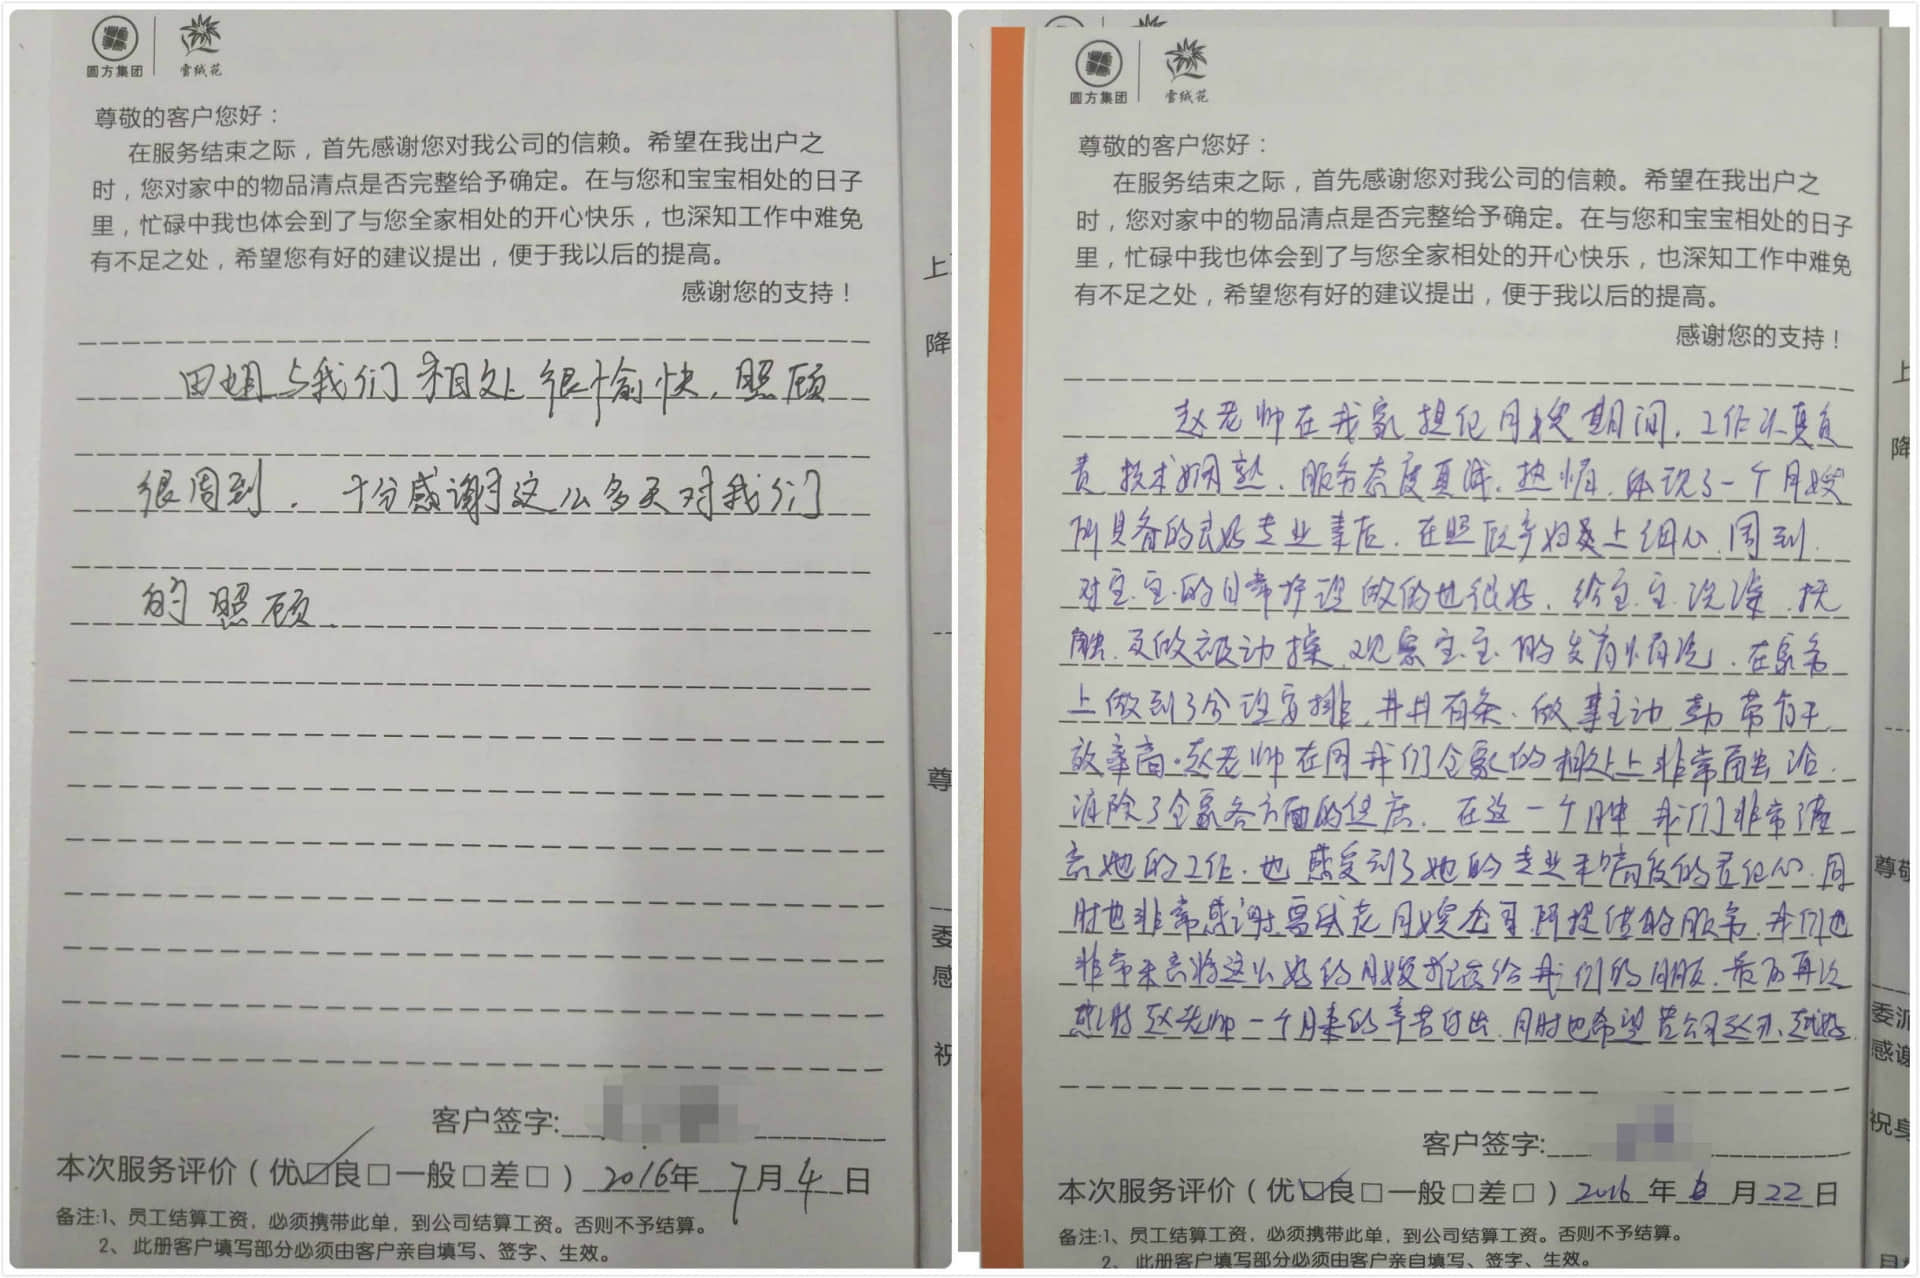 圆方集团
雪绒花
尊敬的客户您好：
在服务结束之际，首先感谢您对我公司的信赖。希望在我出户之
时，您对家中的物品清点是否完整给予确定。在与您和宝宝相处的日子
里，忙碌中我也体会到了与您全家相处的开心快乐，也深知工作中难免
有不足之处，希望您有好的建议提出，便于我以后的提高。
感谢您的支持！
田姐与我们相处很愉快，照顾
很周到，十分感谢这么多天对我们
的照顾.
客户签字:
本次服务评价（优☑良□一般□差□）2016年7月4日
备注:1、员工结算工资，必须携带此单，到公司结算工资。否则不予结算。
2、此册客户填写部分必须由客户亲自填写、签字、生效。
上
降
尊
委
感
祝
圆方集团
雪绒花
尊敬的客户您好：
在服务结束之际，首先感谢您对我公司的信赖。希望在我出户之
时，您对家中的物品清点是否完整给予确定。在与您和宝宝相处的日子
里，忙碌中我也体会到了与您全家相处的开心快乐，也深知工作中难免
有不足之处，希望您有好的建议提出，便于我以后的提高。
感谢您的支持！
赵老师在我家担任月嫂期间，工作认真负
责，技术娴熟，服务态度真诚、热情，体现了一个月嫂
所具备的良好专业素质。在照顾产妇上细心、周到，
对宝宝的日常护理做的也很好，给宝宝洗澡、抚
触及做被动操，观察宝宝的发育情况，在家务
上做到了合理安排，井井有条，做事主动勤
效率高。赵老师在同我们全家的相处上非常融洽，
消除了全家各方面的，在这一个月中我们非常满
意她的工作，也感受到了她的专业和高度的责任心，同
时也非常感谢雪绒花月嫂公司所提供的服务，我们也
非常乐意将这么好的月嫂推荐给我们的朋友，最后再次
感谢赵老师一个月来的辛苦付出，同时也希望贵公司越办越好
客户签字:
本次服务评价（优☑良□一般□差□）2016年6月22日
备注:1、员工结算工资，必须携带此单，到公司结算工资。否则不予结算。
2、此册客户填写部分必须由客户亲自填写、签字、生效。
上
降
尊敬
委派
感谢
祝身